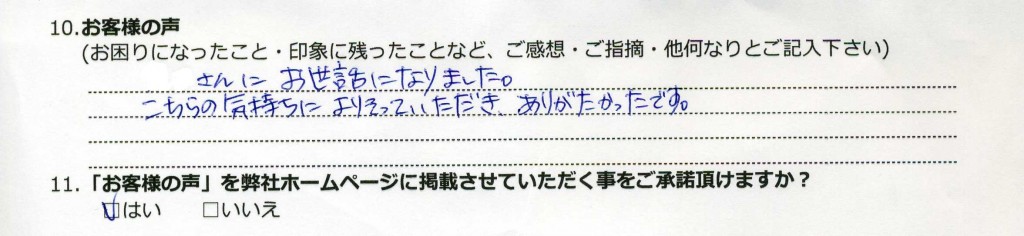 10.お客様の声
(お困りになったこと・印象に残ったことなど、ご感想・ご指摘・他何なりとご記入下さい)
さんに お世話になりました。
こちらの気持ちによりそっていただき、ありがたかったです。
11.「お客様の声」を弊社ホームページに掲載させていただく事をご承諾頂けますか？
☑はい □いいえ